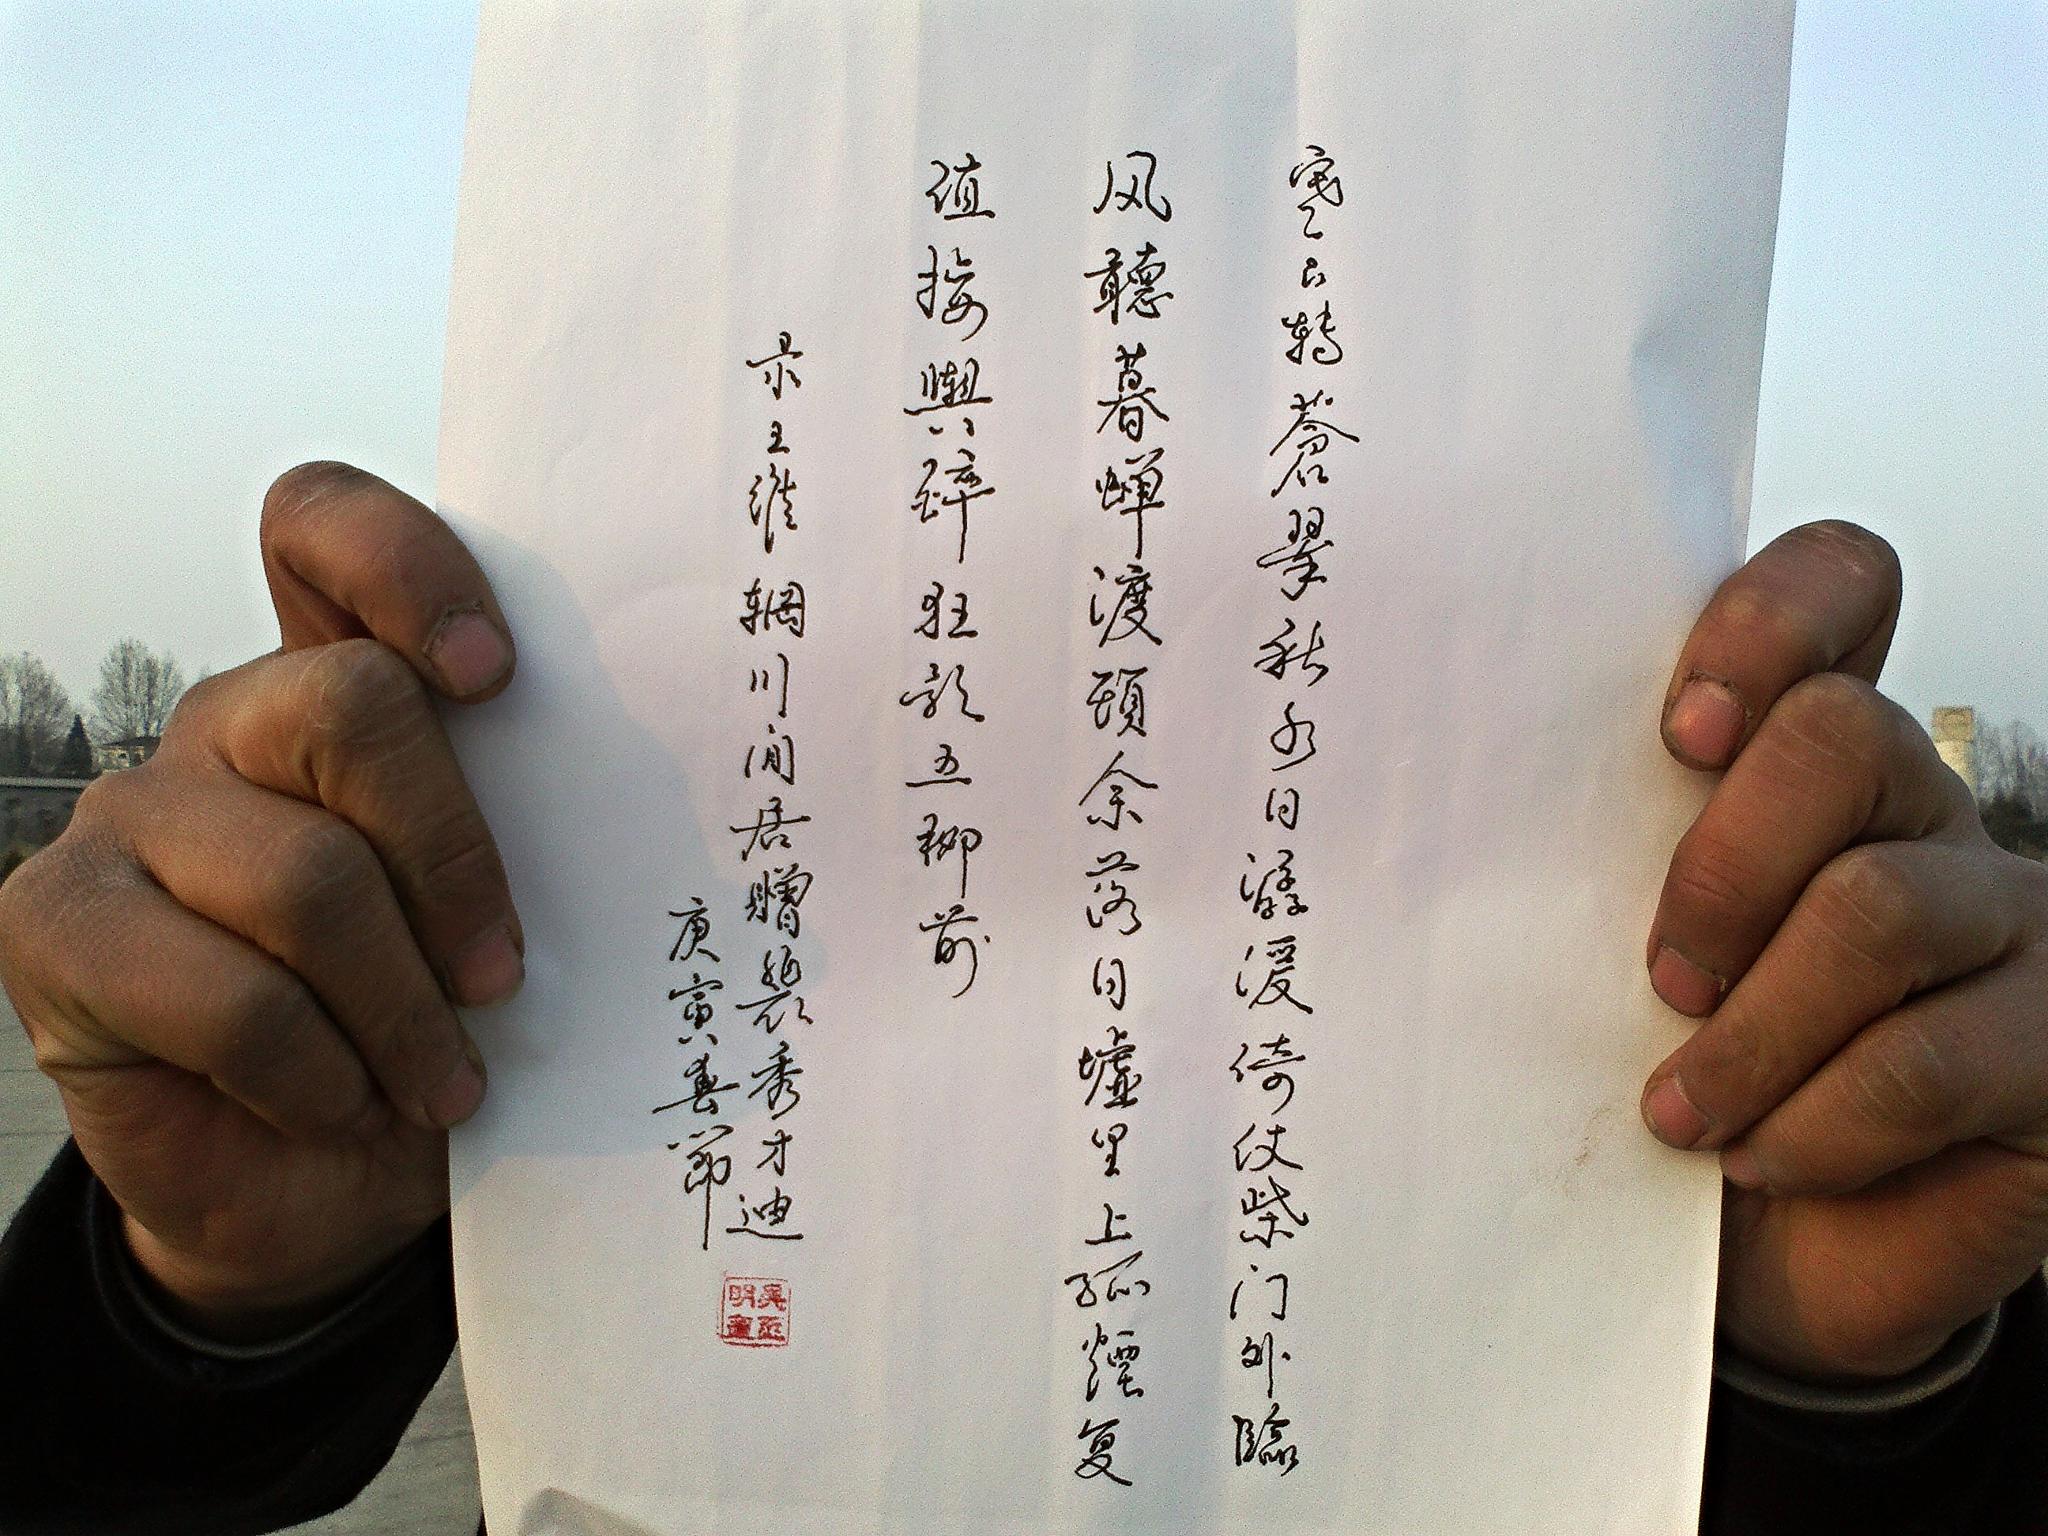 寒山转苍翠秋水日潺湲倚仗柴门外临
风聽暮蝉渡頭余落日墟里上孤煙复
值接輿醉狂歌五柳前
录王维辋川闲居赠裴秀才迪
庚寅春节